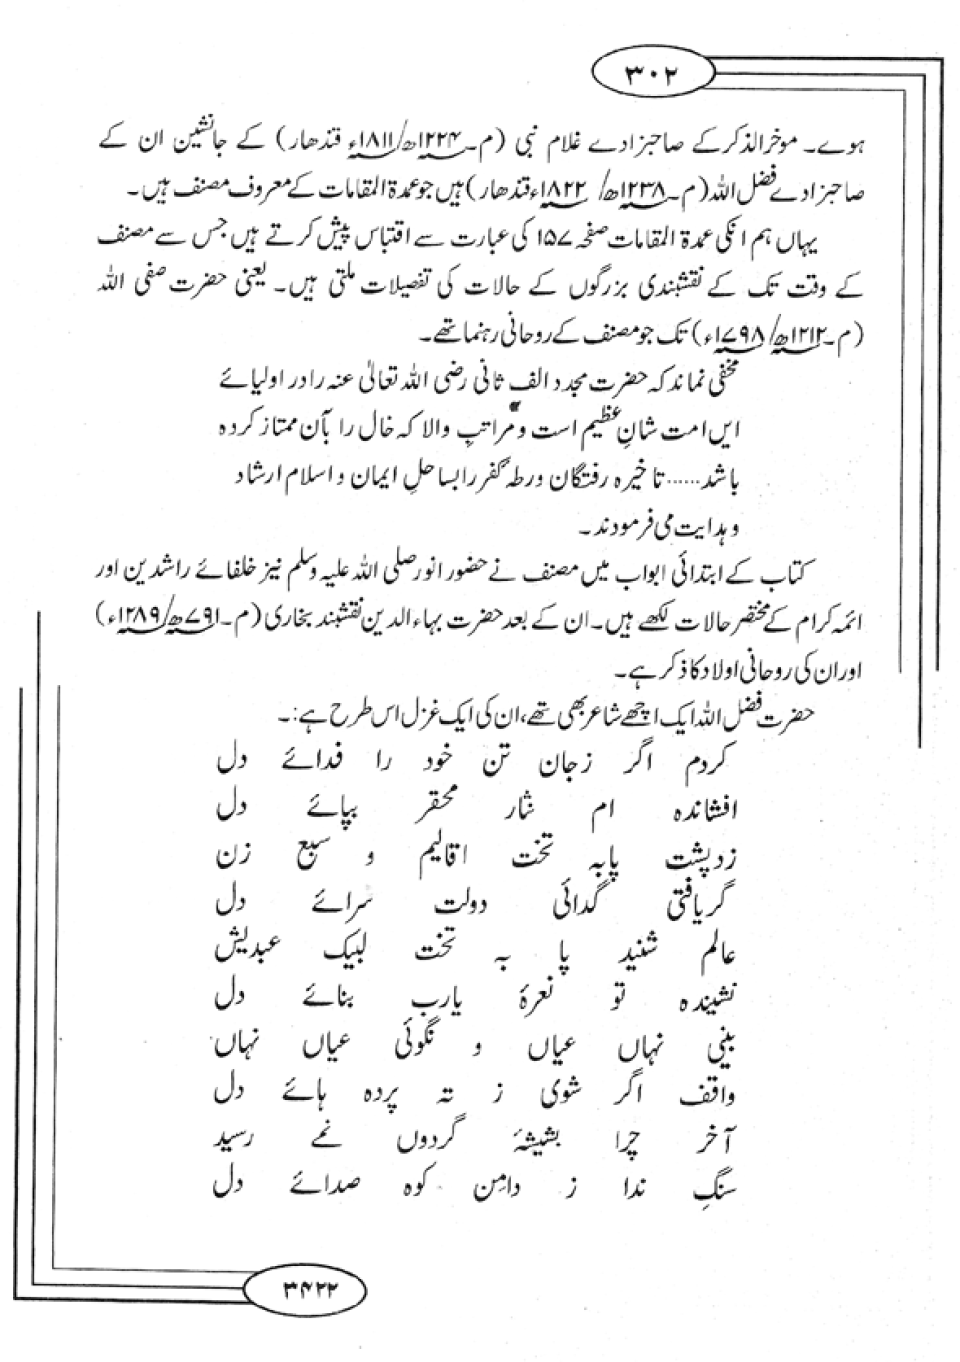 ۳۰۲
ہوے۔ موخرالذکر کے صاحبزادے غلام نبی (م۔۱۲۲۴ھ/۱۸۱۱ء قندھار) کے جانشین ان کے
صاحبزادے فضل اللہ (م۔۱۲۳۸ھ/ ۱۸۲۲ء قندھار) ہیں جو عمدۃ المقامات کے معروف مصنف ہیں۔
یہاں ہم انکی عمدۃ المقامات صفحہ ۱۵۷ کی عبارت سے اقتباس پیش کرتے ہیں جس سے مصنف
کے وقت تک کے نقشبندی بزرگوں کے حالات کی تفصیلات ملتی ہیں۔ یعنی حضرت صفی اللہ
(م۔۱۲۱۲ھ/۱۷۹۸ء) تک جو مصنف کے روحانی رہنما تھے۔
مخفی نماند کہ حضرت مجدد الف ثانی رضی اللہ تعالیٰ عنہ را در اولیائے
ایں امت شانِ عظیم است و مراتبِ والا کہ خال را بآن ممتاز کردہ
باشد...... تا خیرہ رفتگان ورطہ کفر را بساحلِ ایمان و اسلام ارشاد
و ہدایت می فرمودند۔
کتاب کے ابتدائی ابواب میں مصنف نے حضور انور صلی اللہ علیہ وسلم نیز خلفائے راشدین اور
ائمہ کرام کے مختصر حالات لکھے ہیں۔ ان کے بعد حضرت بہاء الدین نقشبند بخاری (م۔۷۹۱ھ/۱۲۸۹ء)
اور ان کی روحانی اولاد کا ذکر ہے۔
حضرت فضل اللہ ایک اچھے شاعر بھی تھے، ان کی ایک غزل اس طرح ہے:۔
کردم اگر زجان تن خود را فدائے دل
افشاندہ ام نثار محقر بپائے دل
زدپشت پابہ تخت اقالیم و سبع زن
گریافتی گدائی دولت سرائے دل
عالم شنید پا بہ تخت لبیک عبدیش
نشیندہ تو نعرۂ یارب بنائے دل
بینی نہاں عیاں و نگوئی عیاں نہاں
واقف اگر شوی ز تہ پردہ ہائے دل
آخر چرا بشیشۂ گردوں نمے رسید
سنگِ ندا ز دامنِ کوہ صدائے دل
۳۴۲۲